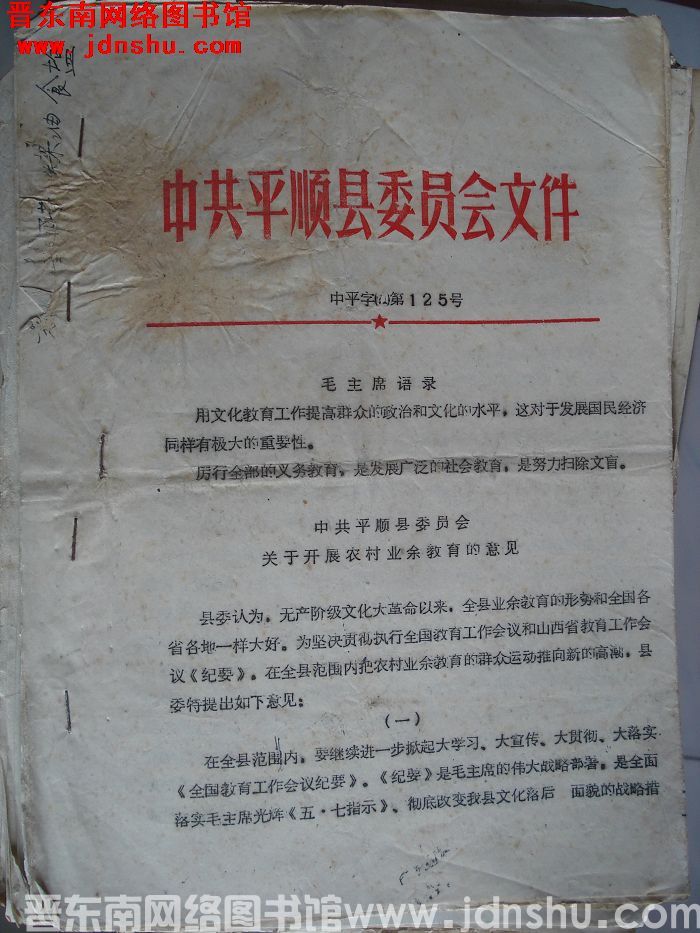 晋东南网络图书馆
www.jdnshu.com
食盐
中共平顺县委员会文件
中平字(71)第125号
毛主席语录
用文化教育工作提高群众的政治和文化的水平，这对于发展国民经济
同样有极大的重要性。
厉行全部的义务教育，是发展广泛的社会教育，是努力扫除文盲。
中共平顺县委员会
关于开展农村业余教育的意见
县委认为，无产阶级文化大革命以来，全县业余教育的形势和全国各
省各地一样大好。为坚决贯彻执行全国教育工作会议和山西省教育工作会
议《纪要》，在全县范围内把农村业余教育的群众运动推向新的高潮，县
委特提出如下意见：
(一)
在全县范围内，要继续进一步掀起大学习、大宣传、大贯彻、大落实
《全国教育工作会议纪要》。《纪要》是毛主席的伟大战略部署，是全面
落实毛主席光辉《五·七指示》、彻底改变我县文化落后 面貌的战略措
晋东南网络图书馆www.jdnshu.com